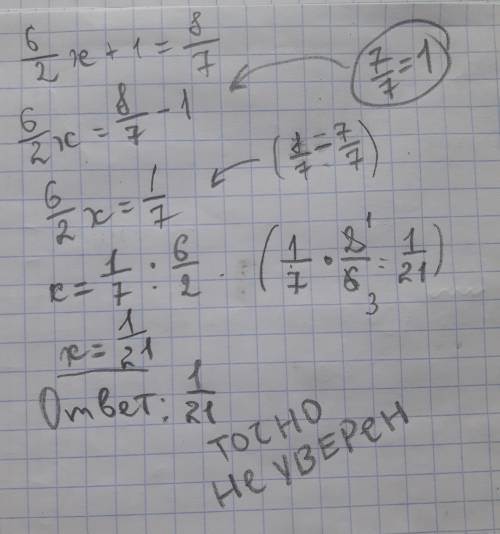 6/2 x + 1 = 8/7
7/7 = 1
6/2 x = 8/7 - 1
(1/7 = 7/7)
6/2 x = 1/7
x = 1/7 : 6/2
(1/7 · 2/6 = 1/21)
1
3
x = 1/21
Ответ: 1/21
точно
не уверен